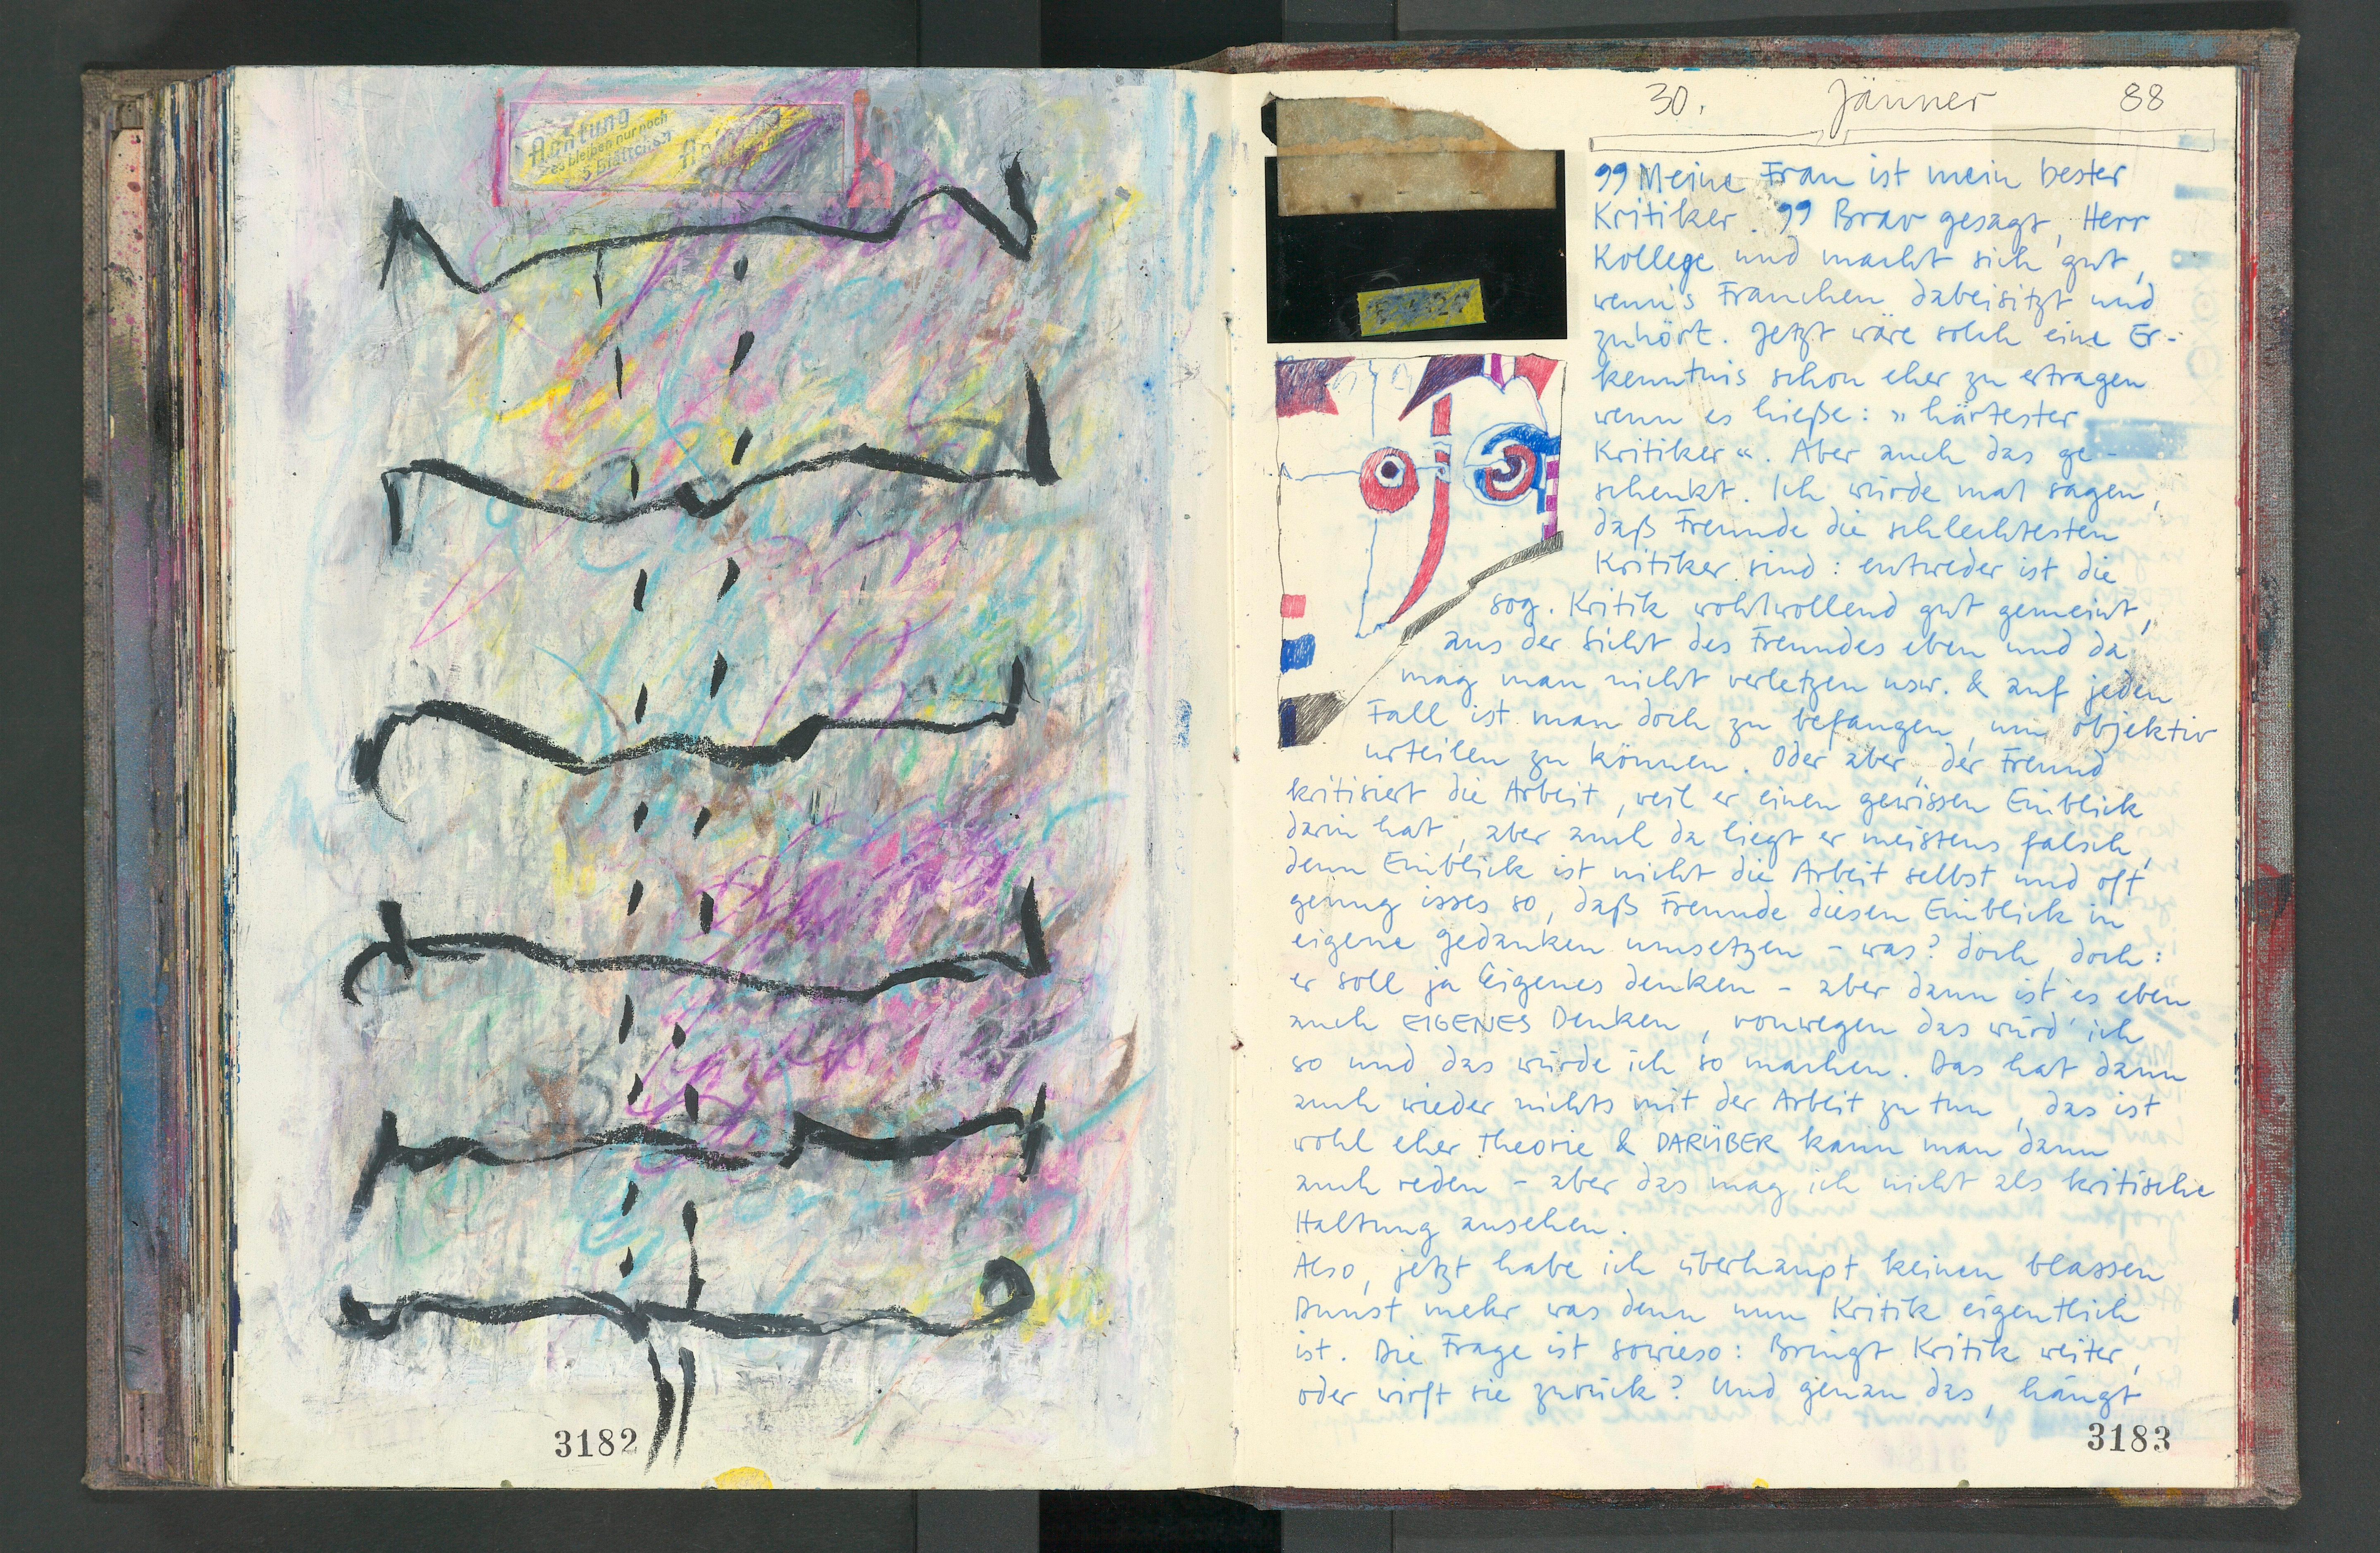 Achtung
es bleiben nur noch
5 Blättchen
3182
30. Jänner 88
„Meine Frau ist mein bester
Kritiker." Brav gesagt, Herr
Kollege und macht sich gut,
wenn's Frauchen dabeisitzt und
zuhört. Jetzt wäre solch eine Er-
kenntnis schon eher zu ertragen
wenn es hieße: „härtester
Kritiker“. Aber auch das ge-
schenkt. Ich würde mal sagen,
daß Freunde die schlechtesten
Kritiker sind: entweder ist die
sog. Kritik wohlwollend gut gemeint,
aus der Sicht des Freundes eben und da
mag man nicht verletzen usw. & auf jeden
Fall ist man doch zu befangen, um objektiv
urteilen zu können. Oder aber, der Freund
kritisiert die Arbeit, weil er einen gewissen Einblick
darin hat, aber auch da liegt er meistens falsch,
denn Einblick ist nicht die Arbeit selbst und oft
genug isses so, daß Freunde diesen Einblick in
eigene Gedanken umsetzen – was? doch, doch:
er soll ja Eigenes denken – aber dann ist es eben
auch EIGENES Denken, vonwegen das würd' ich
so und das würde ich so machen. Das hat dann
auch wieder nichts mit der Arbeit zu tun, das ist
wohl eher Theorie & DARÜBER kann man dann
auch reden – aber das mag ich nicht als kritische
Haltung ansehen.
Also, jetzt habe ich überhaupt keinen blassen
Dunst mehr was denn nun Kritik eigentlich
ist. Die Frage ist sowieso: Bringt Kritik weiter,
oder wirft sie zurück? Und genau das, hängt
3183